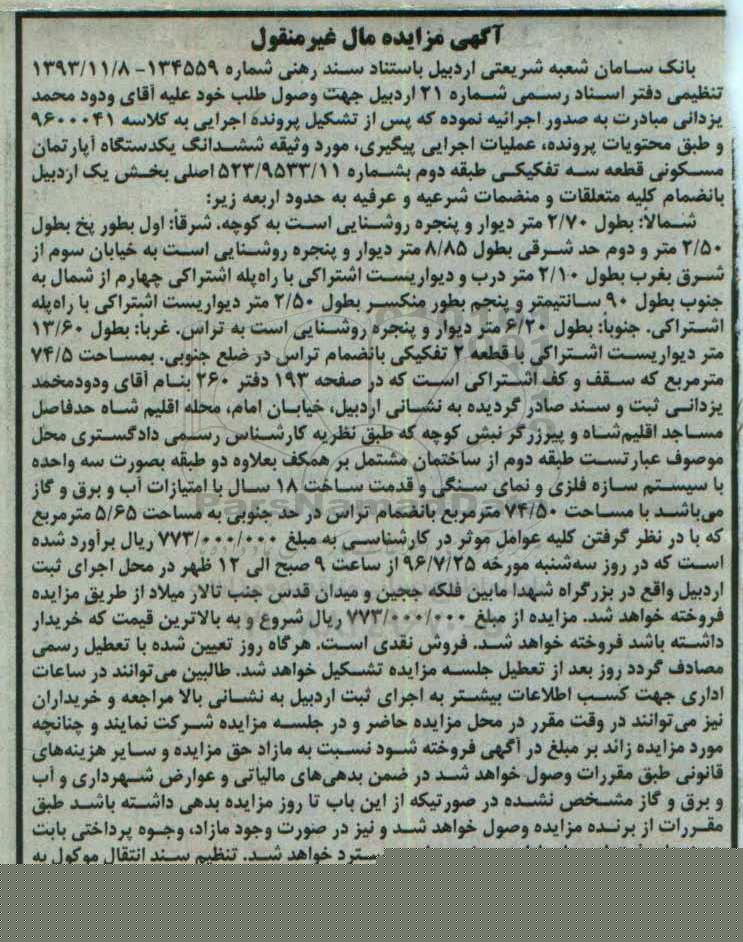 آگهی مزایده مال غیرمنقول
بانک سامان شعبه شریعتی اردبیل باستناد سند رهنی شماره ۱۳۴۵۵۹- ۱۳۹۳/۱۱/۸
تنظیمی دفتر اسناد رسمی شماره ۲۱ اردبیل جهت وصول طلب خود علیه آقای ودود محمد
یزدانی مبادرت به صدور اجرائیه نموده که پس از تشکیل پرونده اجرایی به کلاسه ۹۶۰۰۰۴۱
و طبق محتویات پرونده، عملیات اجرایی پیگیری، مورد وثیقه ششدانگ یکدستگاه آپارتمان
مسکونی قطعه سه تفکیکی طبقه دوم بشماره ۵۲۳/۹۵۳۳/۱۱ اصلی بخش یک اردبیل
بانضمام کلیه متعلقات و منضمات شرعیه و عرفیه به حدود اربعه زیر:
شمالاً: بطول ۲/۷۰ متر دیوار و پنجره روشنایی است به کوچه. شرقاً: اول بطور پخ بطول
۲/۵۰ متر و دوم حد شرقی بطول ۸/۸۵ متر دیوار و پنجره روشنایی است به خیابان سوم از
شرق بغرب بطول ۲/۱۰ متر درب و دیواریست اشتراکی با راه‌پله اشتراکی چهارم از شمال به
جنوب بطول ۹۰ سانتیمتر و پنجم بطور منکسر بطول ۲/۵۰ متر دیواریست اشتراکی با راه‌پله
اشتراکی. جنوباً: بطول ۶/۲۰ متر دیوار و پنجره روشنایی است به تراس. غرباً: بطول ۱۳/۶۰
متر دیواریست اشتراکی با قطعه ۲ تفکیکی بانضمام تراس در ضلع جنوبی. بمساحت ۷۴/۵
مترمربع که سقف و کف اشتراکی است که در صفحه ۱۹۳ دفتر ۲۶۰ بنام آقای ودودمحمد
یزدانی ثبت و سند صادر گردیده به نشانی اردبیل، خیابان امام، محله اقلیم شاه حدفاصل
مساجد اقلیم‌شاه و پیرزرگر نبش کوچه که طبق نظریه کارشناس رسمی دادگستری محل
موصوف عبارتست طبقه دوم از ساختمان مشتمل بر همکف بعلاوه دو طبقه بصورت سه واحده
با سیستم سازه فلزی و نمای سنگی و قدمت ساخت ۱۸ سال با امتیازات آب و برق و گاز
می‌باشد با مساحت ۷۴/۵۰ مترمربع بانضمام تراس در حد جنوبی به مساحت ۵/۶۵ مترمربع
که با در نظر گرفتن کلیه عوامل موثر در کارشناسی به مبلغ ۷۷۳/۰۰۰/۰۰۰ ریال برآورد شده
است که در روز سه‌شنبه مورخه ۹۶/۷/۲۵ از ساعت ۹ صبح الی ۱۲ ظهر در محل اجرای ثبت
اردبیل واقع در بزرگراه شهدا مابین فلکه ججین و میدان قدس جنب تالار میلاد از طریق مزایده
فروخته خواهد شد. مزایده از مبلغ ۷۷۳/۰۰۰/۰۰۰ ریال شروع و به بالاترین قیمت که خریدار
داشته باشد فروخته خواهد شد. فروش نقدی است. هرگاه روز تعیین شده با تعطیل رسمی
مصادف گردد روز بعد از تعطیل جلسه مزایده تشکیل خواهد شد. طالبین می‌توانند در ساعات
اداری جهت کسب اطلاعات بیشتر به اجرای ثبت اردبیل به نشانی بالا مراجعه و خریداران
نیز می‌توانند در وقت مقرر در محل مزایده حاضر و در جلسه مزایده شرکت نمایند و چنانچه
مورد مزایده زائد بر مبلغ در آگهی فروخته شود نسبت به مازاد حق مزایده و سایر هزینه‌های
قانونی طبق مقررات وصول خواهد شد در ضمن بدهی‌های مالیاتی و عوارض شهرداری و آب
و برق و گاز مشخص نشده در صورتیکه از این باب تا روز مزایده بدهی داشته باشد طبق
مقررات از برنده مزایده وصول خواهد شد و نیز در صورت وجود مازاد، وجوه پرداختی بابت
مسترد خواهد شد. تنظیم سند انتقال موکول به